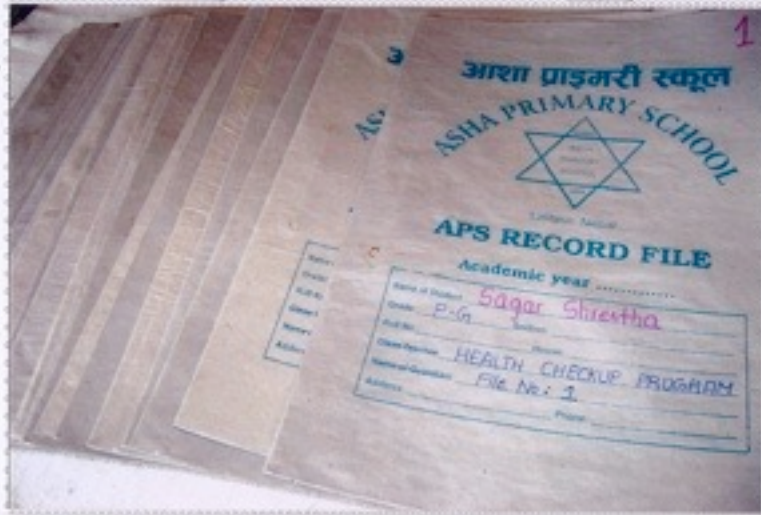 1
आशा प्राइमरी स्कूल
ASHA PRIMARY SCHOOL
Lalitpur, Nepal
APS RECORD FILE
Academic year .............
Name of Student Sagar Shrestha
Grade P-G Section
Roll No.
Class Teacher HEALTH CHECKUP PROGRAM
Name of Guardian File No: 1
Address Phone